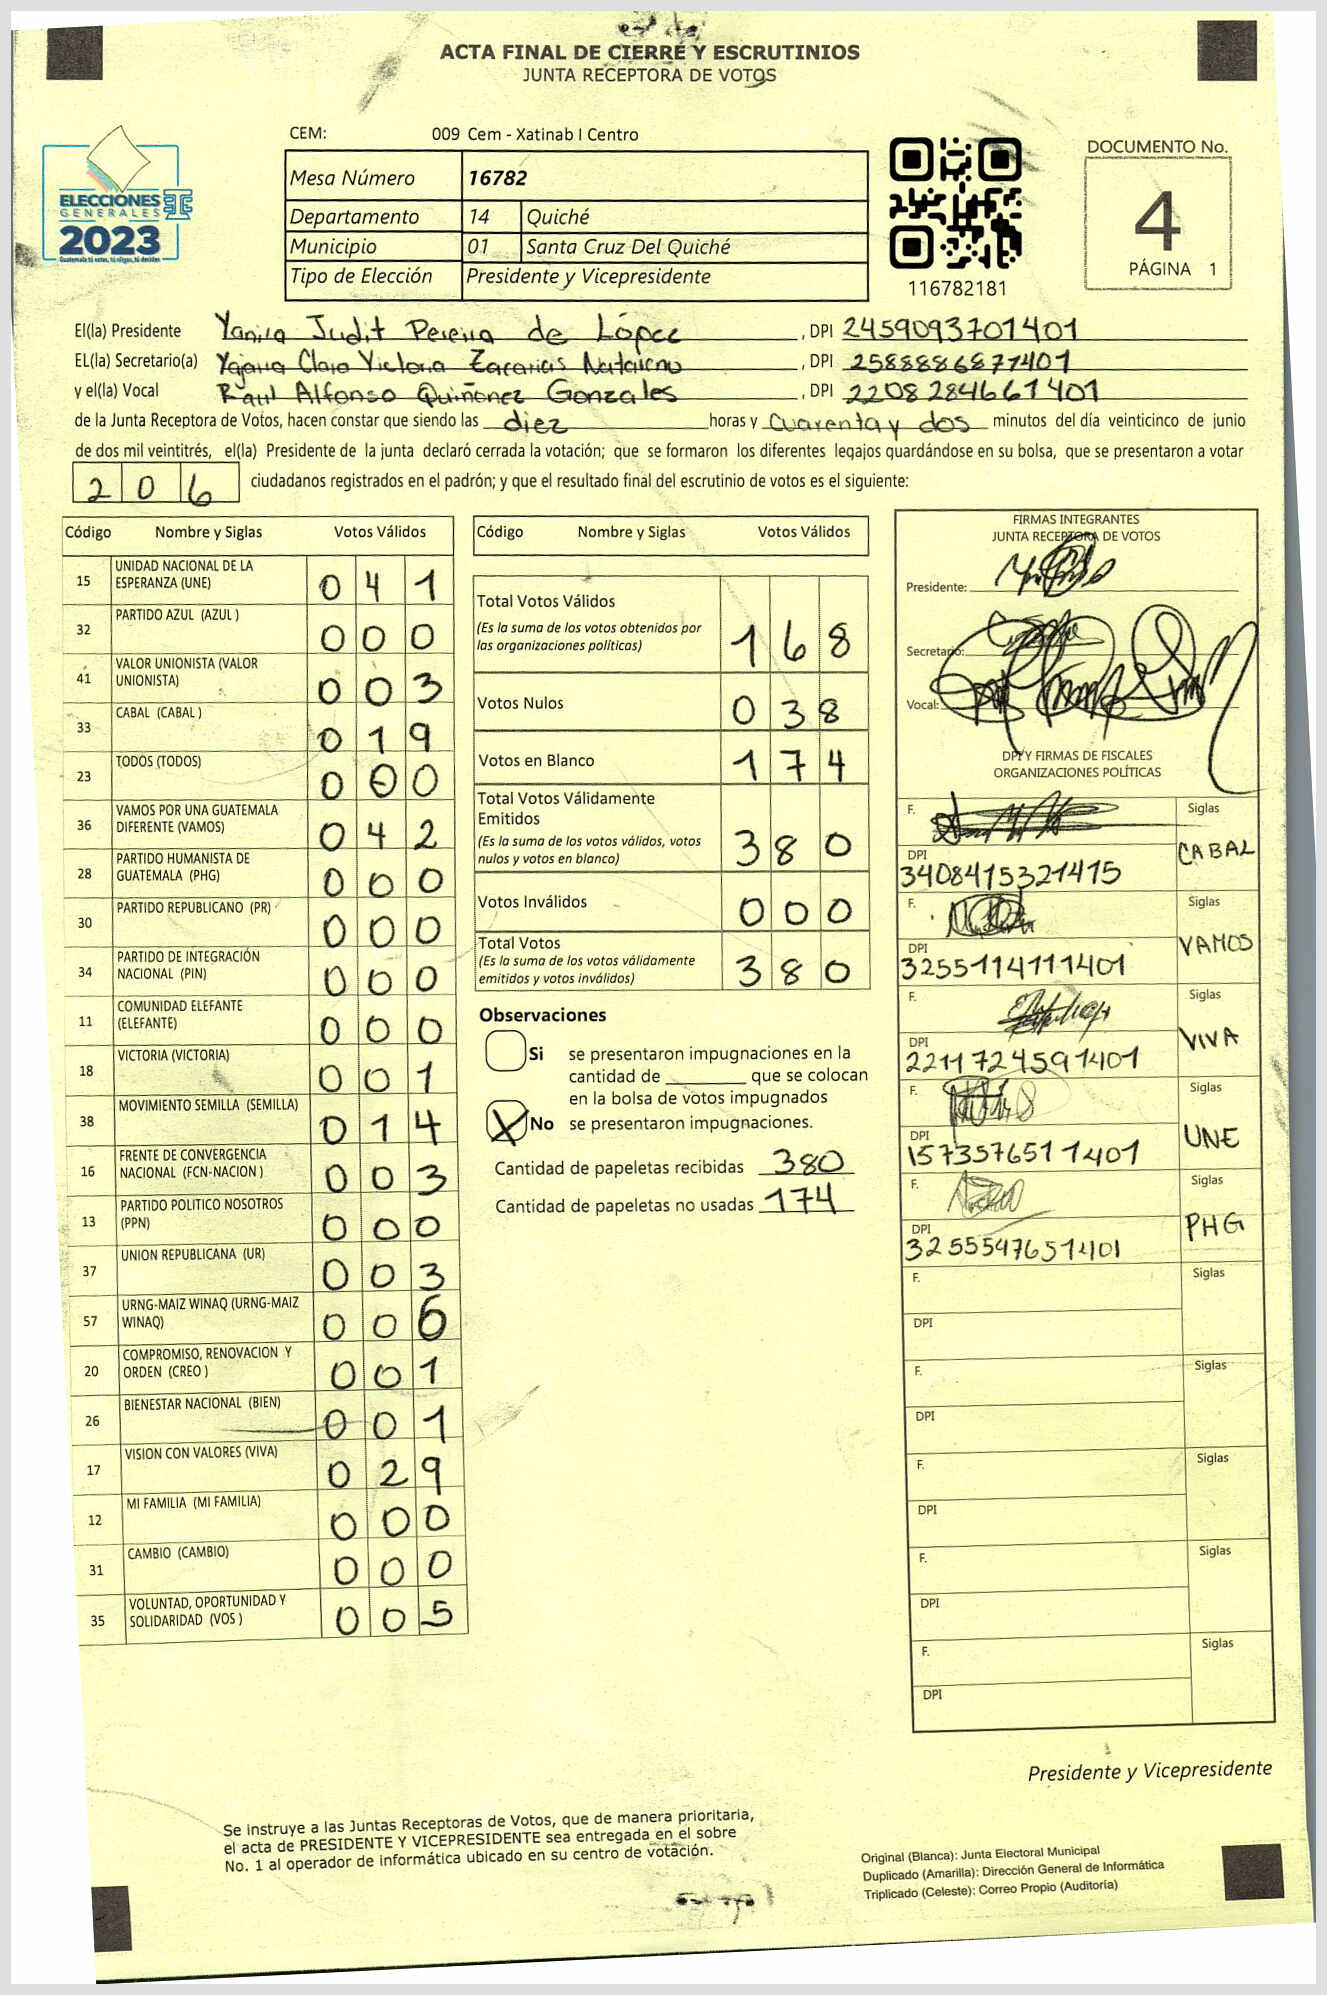 ACTA FINAL DE CIERRE Y ESCRUTINIOS
JUNTA RECEPTORA DE VOTOS
ELECCIONES
GENERALES
2023
Guatemala tú votas, tú eliges, tú decides
TSE
CEM: 009 Cem - Xatinab I Centro
Mesa Número 16782
Departamento 14 Quiché
Municipio 01 Santa Cruz Del Quiché
Tipo de Elección Presidente y Vicepresidente
116782181
DOCUMENTO No.
4
PÁGINA 1
El(la) Presidente Yanira Judit Pereira de López, DPI 2459093701401
EL(la) Secretario(a) Clara Victoria Zacarias, DPI 2588886871401
y el(la) Vocal Raul Alfonso Quiñonez Gonzales, DPI 2208284661401
de la Junta Receptora de Votos, hacen constar que siendo las diez horas y cuarenta y dos minutos del día veinticinco de junio
de dos mil veintitrés, el(la) Presidente de la junta declaró cerrada la votación; que se formaron los diferentes legajos guardándose en su bolsa, que se presentaron a votar
206 ciudadanos registrados en el padrón; y que el resultado final del escrutinio de votos es el siguiente:
Código Nombre y Siglas Votos Válidos
15 UNIDAD NACIONAL DE LA ESPERANZA (UNE) 041
32 PARTIDO AZUL (AZUL ) 000
41 VALOR UNIONISTA (VALOR UNIONISTA) 003
33 CABAL (CABAL ) 019
23 TODOS (TODOS) 000
36 VAMOS POR UNA GUATEMALA DIFERENTE (VAMOS) 042
28 PARTIDO HUMANISTA DE GUATEMALA (PHG) 000
30 PARTIDO REPUBLICANO (PR) 000
34 PARTIDO DE INTEGRACIÓN NACIONAL (PIN) 000
11 COMUNIDAD ELEFANTE (ELEFANTE) 000
18 VICTORIA (VICTORIA) 001
38 MOVIMIENTO SEMILLA (SEMILLA) 014
16 FRENTE DE CONVERGENCIA NACIONAL (FCN-NACION ) 003
13 PARTIDO POLITICO NOSOTROS (PPN) 000
37 UNION REPUBLICANA (UR) 003
57 URNG-MAIZ WINAQ (URNG-MAIZ WINAQ) 006
20 COMPROMISO, RENOVACION Y ORDEN (CREO ) 001
26 BIENESTAR NACIONAL (BIEN) 001
17 VISION CON VALORES (VIVA) 029
12 MI FAMILIA (MI FAMILIA) 000
31 CAMBIO (CAMBIO) 000
35 VOLUNTAD, OPORTUNIDAD Y SOLIDARIDAD (VOS ) 005
Código Nombre y Siglas Votos Válidos
Total Votos Válidos 168
(Es la suma de los votos obtenidos por
las organizaciones políticas)
Votos Nulos 038
Votos en Blanco 174
Total Votos Válidamente
Emitidos 380
(Es la suma de los votos válidos, votos
nulos y votos en blanco)
Votos Inválidos 000
Total Votos 380
(Es la suma de los votos válidamente
emitidos y votos inválidos)
Observaciones
Si se presentaron impugnaciones en la
cantidad de ________ que se colocan
en la bolsa de votos impugnados
X No se presentaron impugnaciones.
Cantidad de papeletas recibidas 380
Cantidad de papeletas no usadas 174
FIRMAS INTEGRANTES
JUNTA RECEPTORA DE VOTOS
Presidente:
Secretario:
Vocal:
DPI Y FIRMAS DE FISCALES
ORGANIZACIONES POLÍTICAS
F. Siglas
DPI CABAL
3408415321415
F. Siglas
DPI VAMOS
3255114111401
F. Siglas
DPI VIVA
2211724591401
F. Siglas
DPI UNE
1573576511401
F. Siglas
DPI PHG
3255547651401
F. Siglas
DPI
F. Siglas
DPI
F. Siglas
DPI
F. Siglas
DPI
F. Siglas
DPI
Presidente y Vicepresidente
Se instruye a las Juntas Receptoras de Votos, que de manera prioritaria,
el acta de PRESIDENTE Y VICEPRESIDENTE sea entregada en el sobre
No. 1 al operador de informática ubicado en su centro de votación.
Original (Blanca): Junta Electoral Municipal
Duplicado (Amarilla): Dirección General de Informática
Triplicado (Celeste): Correo Propio (Auditoría)